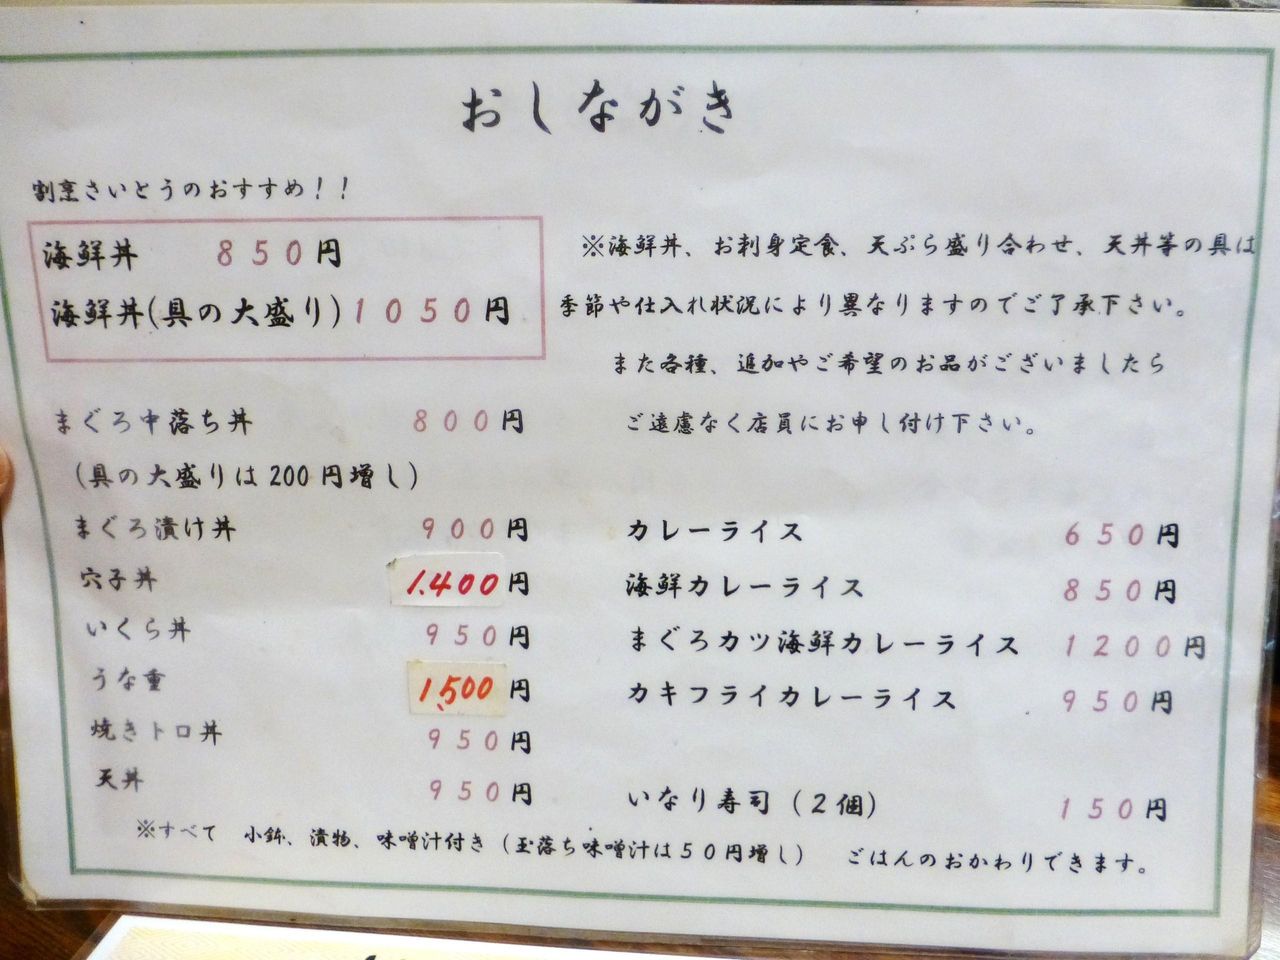 おしながき
割烹さいとうのおすすめ!!
海鮮丼 850円
海鮮丼(具の大盛り)1050円
※海鮮丼、お刺身定食、天ぷら盛り合わせ、天丼等の具は
季節や仕入れ状況により異なりますのでご了承下さい。
また各種、追加やご希望のお品がございましたら
ご遠慮なく店員にお申し付け下さい。
まぐろ中落ち丼 800円
(具の大盛りは200円増し)
まぐろ漬け丼 900円
穴子丼 1.400円
いくら丼 950円
うな重 1,500円
焼きトロ丼 950円
天丼 950円
カレーライス 650円
海鮮カレーライス 850円
まぐろカツ海鮮カレーライス 1200円
カキフライカレーライス 950円
いなり寿司(2個) 150円
※すべて 小鉢、漬物、味噌汁付き(玉落ち味噌汁は50円増し) ごはんのおかわりできます。